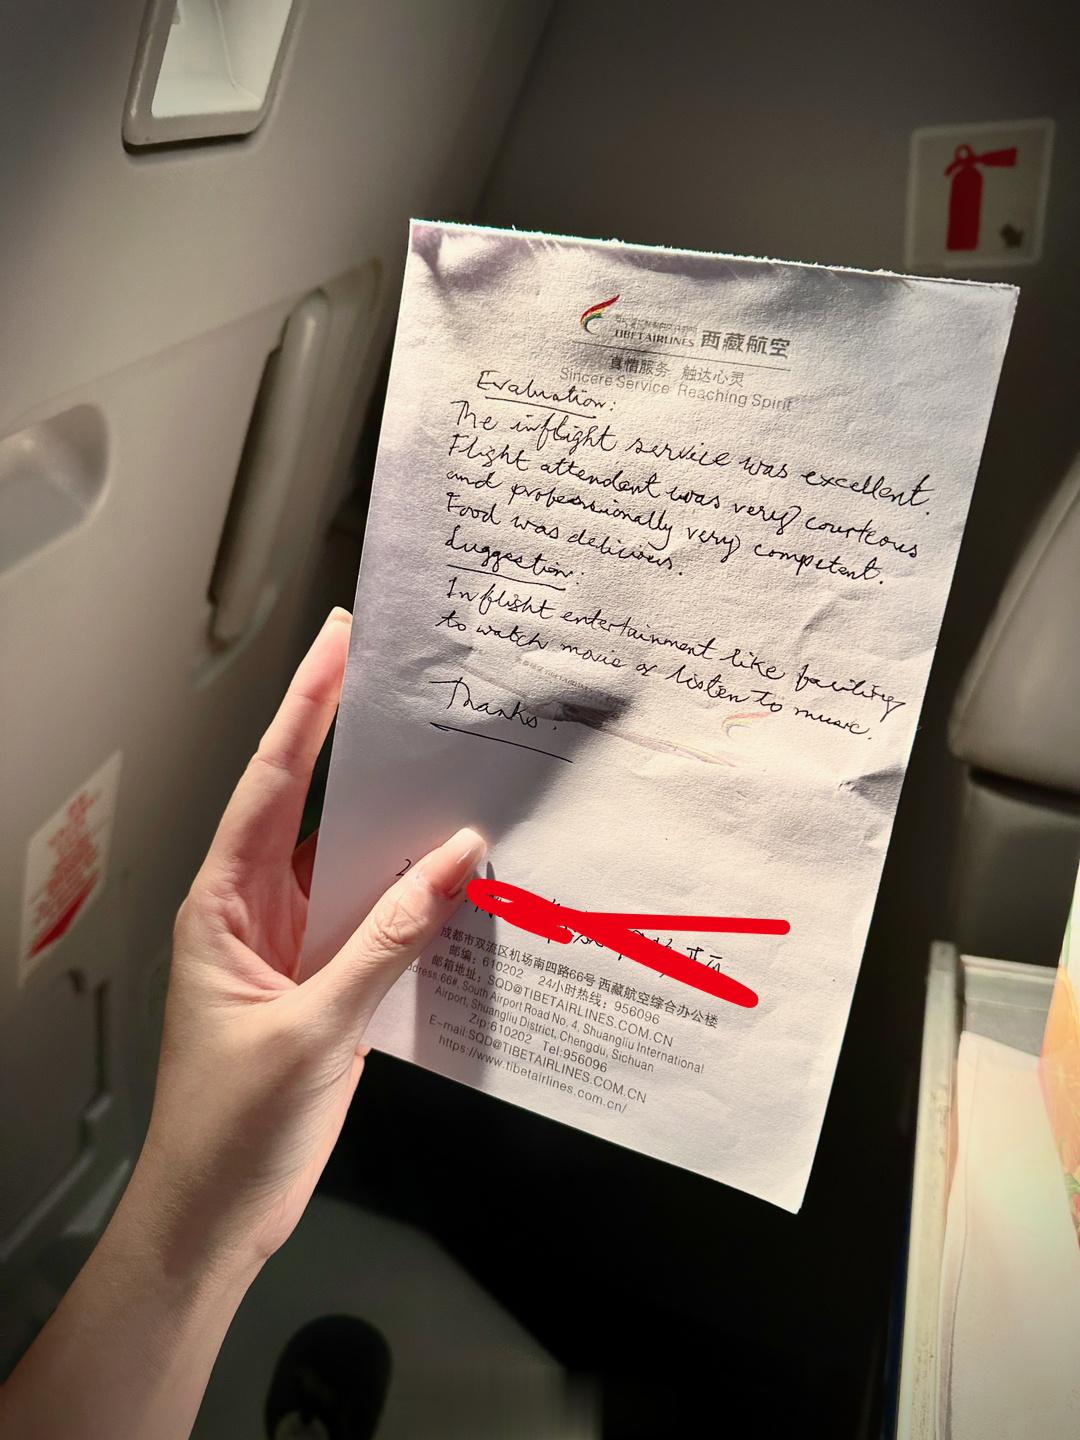 TIBET AIRLINES 西藏航空
真情服务 触达心灵
Sincere Service Reaching Spirit
Evaluation:
The inflight service was excellent.
Flight attendant was very courteous
and professionally very competent.
Food was delicious.
Suggestion:
Inflight entertainment like facility
to watch movie or listen to music.
Thanks.
成都市双流区机场南四路66号 西藏航空综合办公楼
邮编: 610202 24小时热线: 956096
邮箱地址: SQD@TIBETAIRLINES.COM.CN
Address.66#, South Airport Road No. 4, Shuangliu International
Airport, Shuangliu District, Chengdu, Sichuan
Zip:610202 Tel:956096
E-mail:SQD@TIBETAIRLINES.COM.CN
https://www.tibetairlines.com.cn/